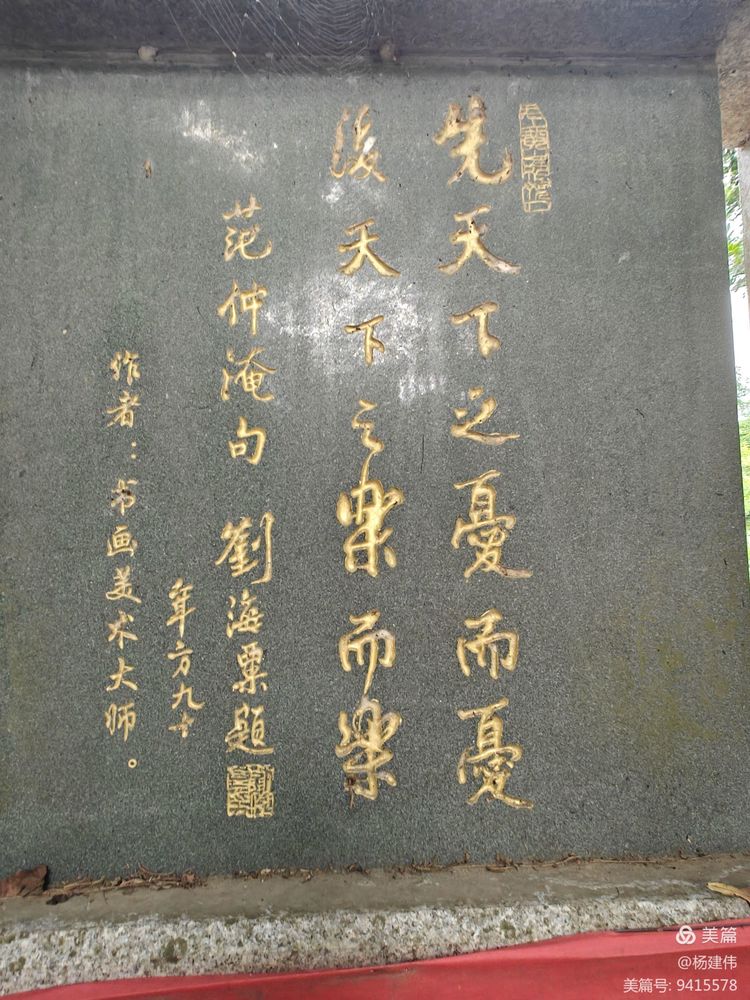 先天下之憂而憂
後天下之樂而樂
范仲淹句 劉海粟題
年方九十
作者：书画美术大师。
美篇
@杨建伟
美篇号: 9415578